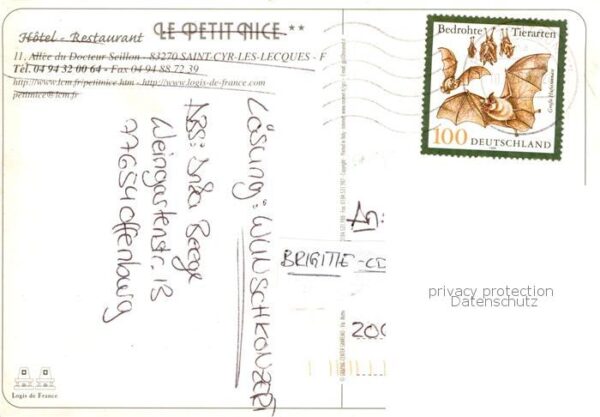 Hôtel - Restaurant LE PETIT NICE **
11, Allée du Docteur Seillon - 83270 SAINT-CYR-LES-LECQUES - F
Tél. 04 94 32 00 64 - Fax 04 94 88 72 39
http://www.lcm.fr/petitnice.htm - http://www.logis-de-france.com
petitnice@lcm.fr
Lösung: WUNSCHKONZERT
ABS:
Weingartenstr. 13
77654 Offenburg
Logis de France
Bedrohte Tierarten
Große Hufeisennase
100 DEUTSCHLAND
An:
BRIGITTE-CD
200
privacy protection
Datenschutz